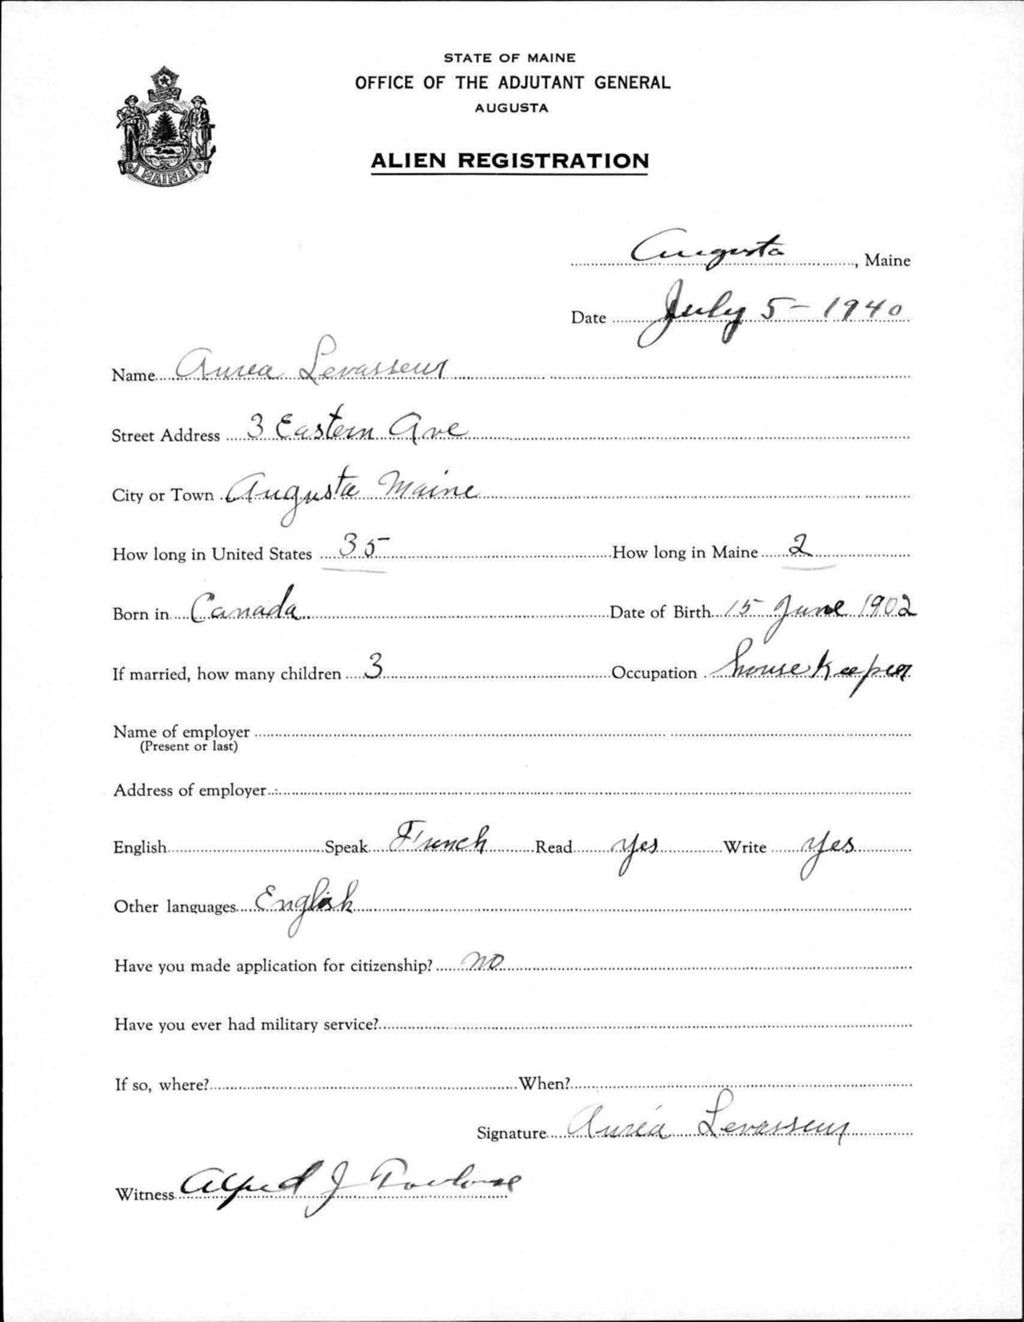 STATE OF MAINE
OFFICE OF THE ADJUTANT GENERAL
AUGUSTA
ALIEN REGISTRATION
MAINE
Augusta, Maine
Date July 5 - 1940
Name Aurea Levasseur
Street Address 3 Eastern Ave
City or Town Augusta Maine
How long in United States 35 How long in Maine 2
Born in Canada Date of Birth 15 June 1902
If married, how many children 3 Occupation house keeper
Name of employer
(Present or last)
Address of employer
English Speak French Read yes Write yes
Other languages English
Have you made application for citizenship? no
Have you ever had military service?
If so, where? When?
Signature Auréa Levasseur
Witness Alfred J